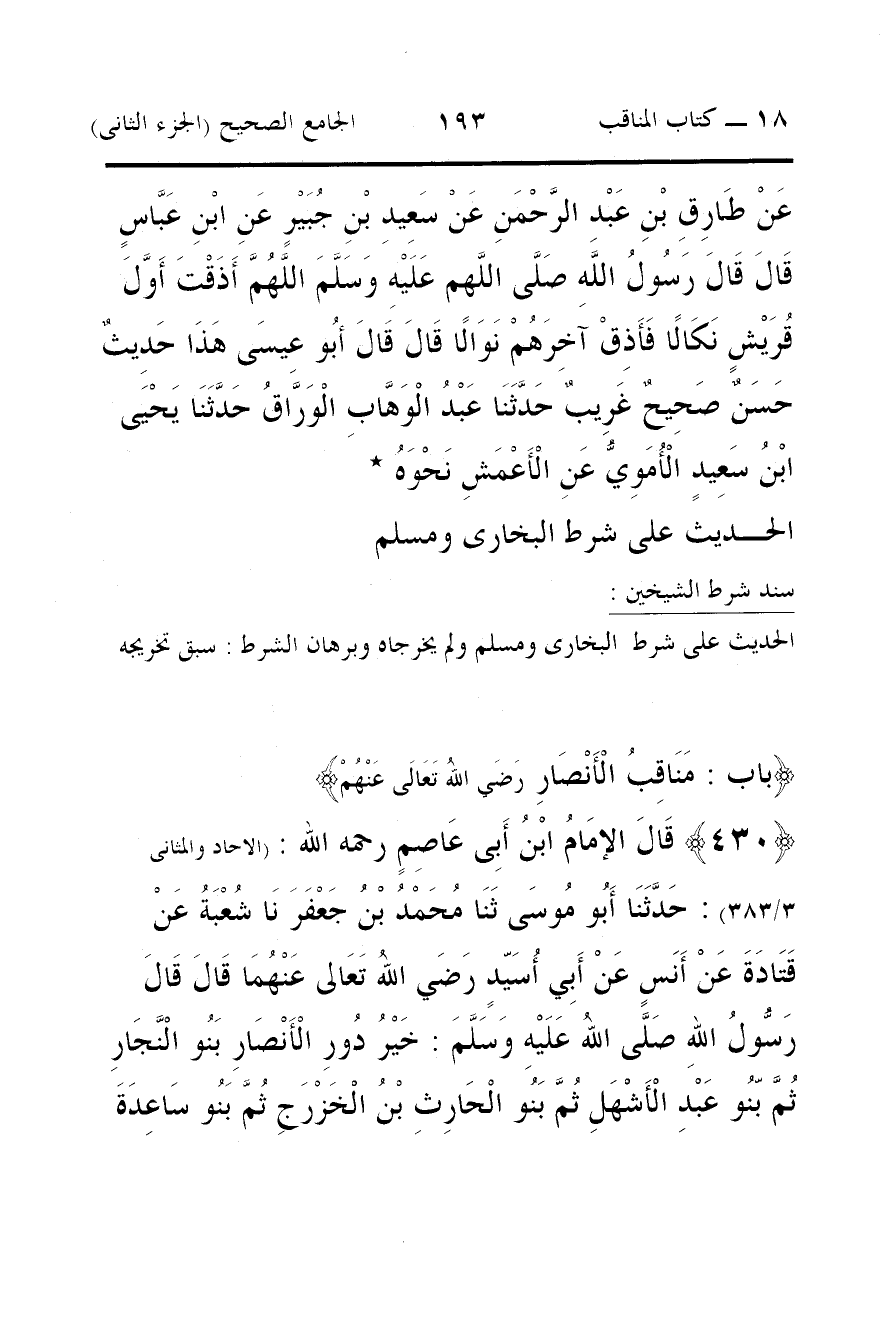 ١٨ ــ كتاب المناقب ١٩٣ الجامع الصحيح (الجزء الثانى)
عَنْ طَارِقِ بْنِ عَبْدِ الرَّحْمَنِ عَنْ سَعِيدِ بْنِ جُبَيْرٍ عَنِ ابْنِ عَبَّاسٍ
قَالَ قَالَ رَسُولُ اللَّهِ صَلَّى اللَّهم عَلَيْهِ وَسَلَّمَ اللَّهُمَّ أَذَقْتَ أَوَّلَ
قُرَيْشٍ نَكَالًا فَأَذِقْ آخِرَهُمْ نَوَالًا قَالَ قَالَ أَبُو عِيسَى هَذَا حَدِيثٌ
حَسَنٌ صَحِيحٌ غَرِيبٌ حَدَّثَنَا عَبْدُ الْوَهَّابِ الْوَرَّاقُ حَدَّثَنَا يَحْيَى
ابْنُ سَعِيدٍ الْأُمَوِيُّ عَنِ الْأَعْمَشِ نَحْوَهُ *
الحـــديث على شرط البخارى ومسلم
سند شرط الشيخين :
الحديث على شرط البخارى ومسلم ولم يخرجاه وبرهان الشرط : سبق تخريجه
﴿باب : مَنَاقِبُ الْأَنْصَارِ رَضِيَ اللهُ تَعَالَى عَنْهُمْ﴾
﴿٤٣٠﴾ قَالَ الإِمَامُ ابْنُ أَبِى عَاصِمٍ رحمه الله : (الاحاد والمثانى
٣٨٣/٣) : حَدَّثَنَا أَبُو مُوسَى ثَنَا مُحَمَّدُ بْنُ جَعْفَرَ نَا شُعْبَةُ عَنْ
قَتَادَةَ عَنْ أَنَسٍ عَنْ أَبِي أُسَيّدٍ رَضِيَ اللهُ تَعَالى عَنْهُمَا قَالَ قَالَ
رَسُّولُ اللهِ صَلَّى اللهُ عَلَيْهِ وَسَلَّمَ : خَيْرُ دُورِ الْأَنْصَارِ بَنُو النَّجَارِ
ثُمَّ بّنُو عَبْدِ الْأَشْهَلِ ثُمَّ بَنُو الْحَارِثِ بْنُ الْخَزْرَجِ ثُمَّ بَنُو سَاعِدَةَ